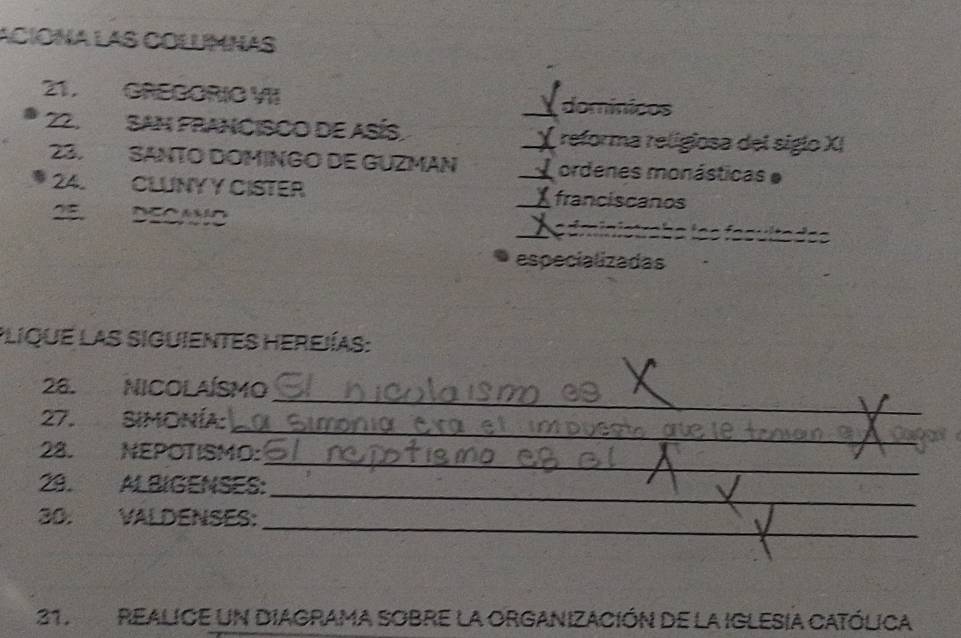 ACIONA LAS COLUMNAS
21. GREGORIO VII
dominicos
22. SAN FRANCISCO DE ASÍS.
reforma religiosa del siglo XI
23. SANTO DOMINGO DE GUZMAN
ordenes monásticas
24. CLUNY Y CISTER
franciscanos
25. DECANO
administraba las facultades
especializadas
PLIQUE LAS SIGUIENTES HEREJÍAS:
26. NICOLAÍSMO El nicolaismo es
27. SIMONÍA: La simonia era el impuesto que le tenian q
28. NEPOTISMO: El nepotismo es el
29. ALBIGENSES:
30. VALDENSES:
31. REALICE UN DIAGRAMA SOBRE LA ORGANIZACIÓN DE LA IGLESIA CATÓLICA